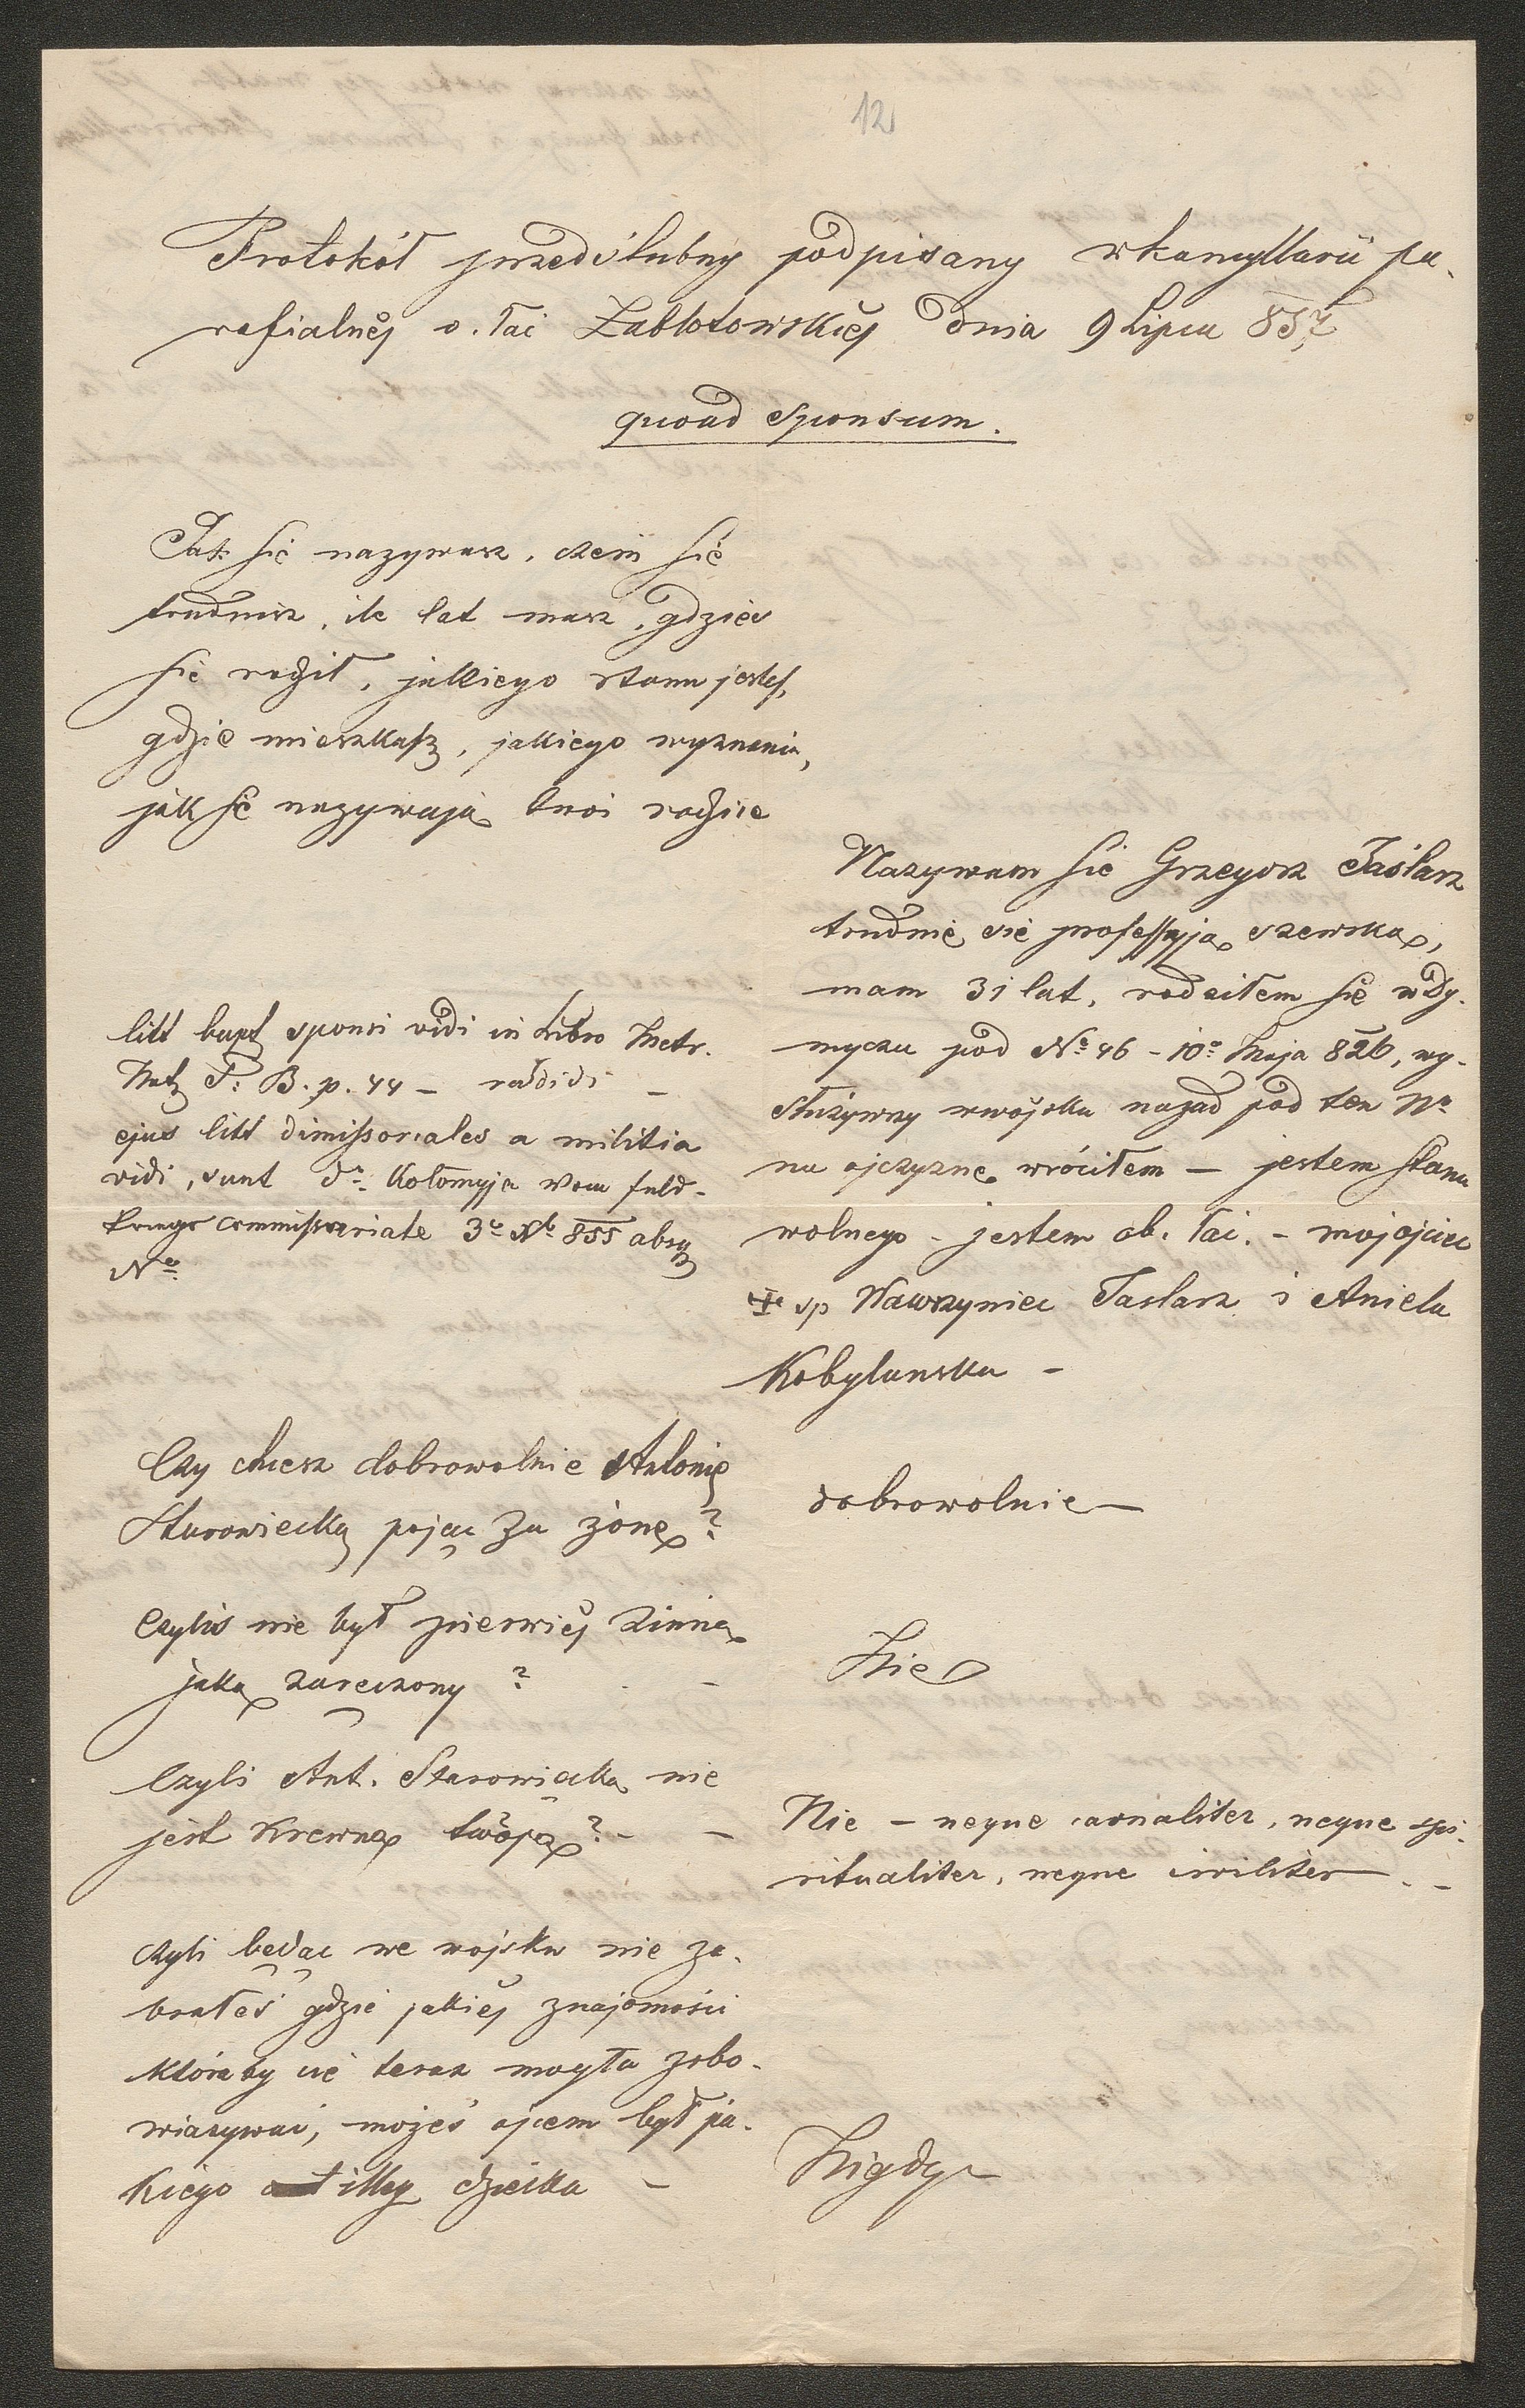 12
Protokół przedślubny podpisany w kancyllarii pa-
rafialnéj o. łać Zabłotowskiéj dnia 9 Lipca 857
quoad Sponsum.
Jak się nazywasz, czem się
trudnisz, ile lat masz, gdzieś
się rodził, jakiego stanu jesteś,
gdzie mieszkasz, jakiego wyznania,
jak się nazywają twoi rodzice
Nazywam się Grzegorz Taślarz
trudnię się professyją szewską,
mam 31 lat, rodziłem się w Dy-
myczu pod No 46 - 10o Maja 826, wy-
służywszy w wojsku nazad pod ten No
na ojczyznę wróciłem — jestem stanu
wolnego - jestem ob. łać. - moj ojciec
✠ sp Wawrzyniec Taslarz i Aniela
Kobylanska -
litt bapt sponsi vidi in Libro Metr.
Nat T: B. p. 44 -
ejus litt dimissoriales a militia
vidi, sunt do Kołomyja vom Feld-
Kriegs commissariate 3o 855 absq
No
Czy chcesz dobrowolnie Antonię
Starowiecką pojąć za żonę?
dobrowolnie —
Czyliś nie był pierwiéj z inną
jaką zaręczony? -
Nie
Czyli Ant. Starowiecka nie
jest krewną twoją? - -
Nie - neque carnaliter, neque spi-
ritualiter, neque civiliter . -
czyli będąc we wojsku nie za-
brałeś gdzie jakiéj znajomości
któraby cię teraz mogła zobo-
wiazywać, możeś ojcem był ja-
kiego illeg dziecka -
Nigdy -